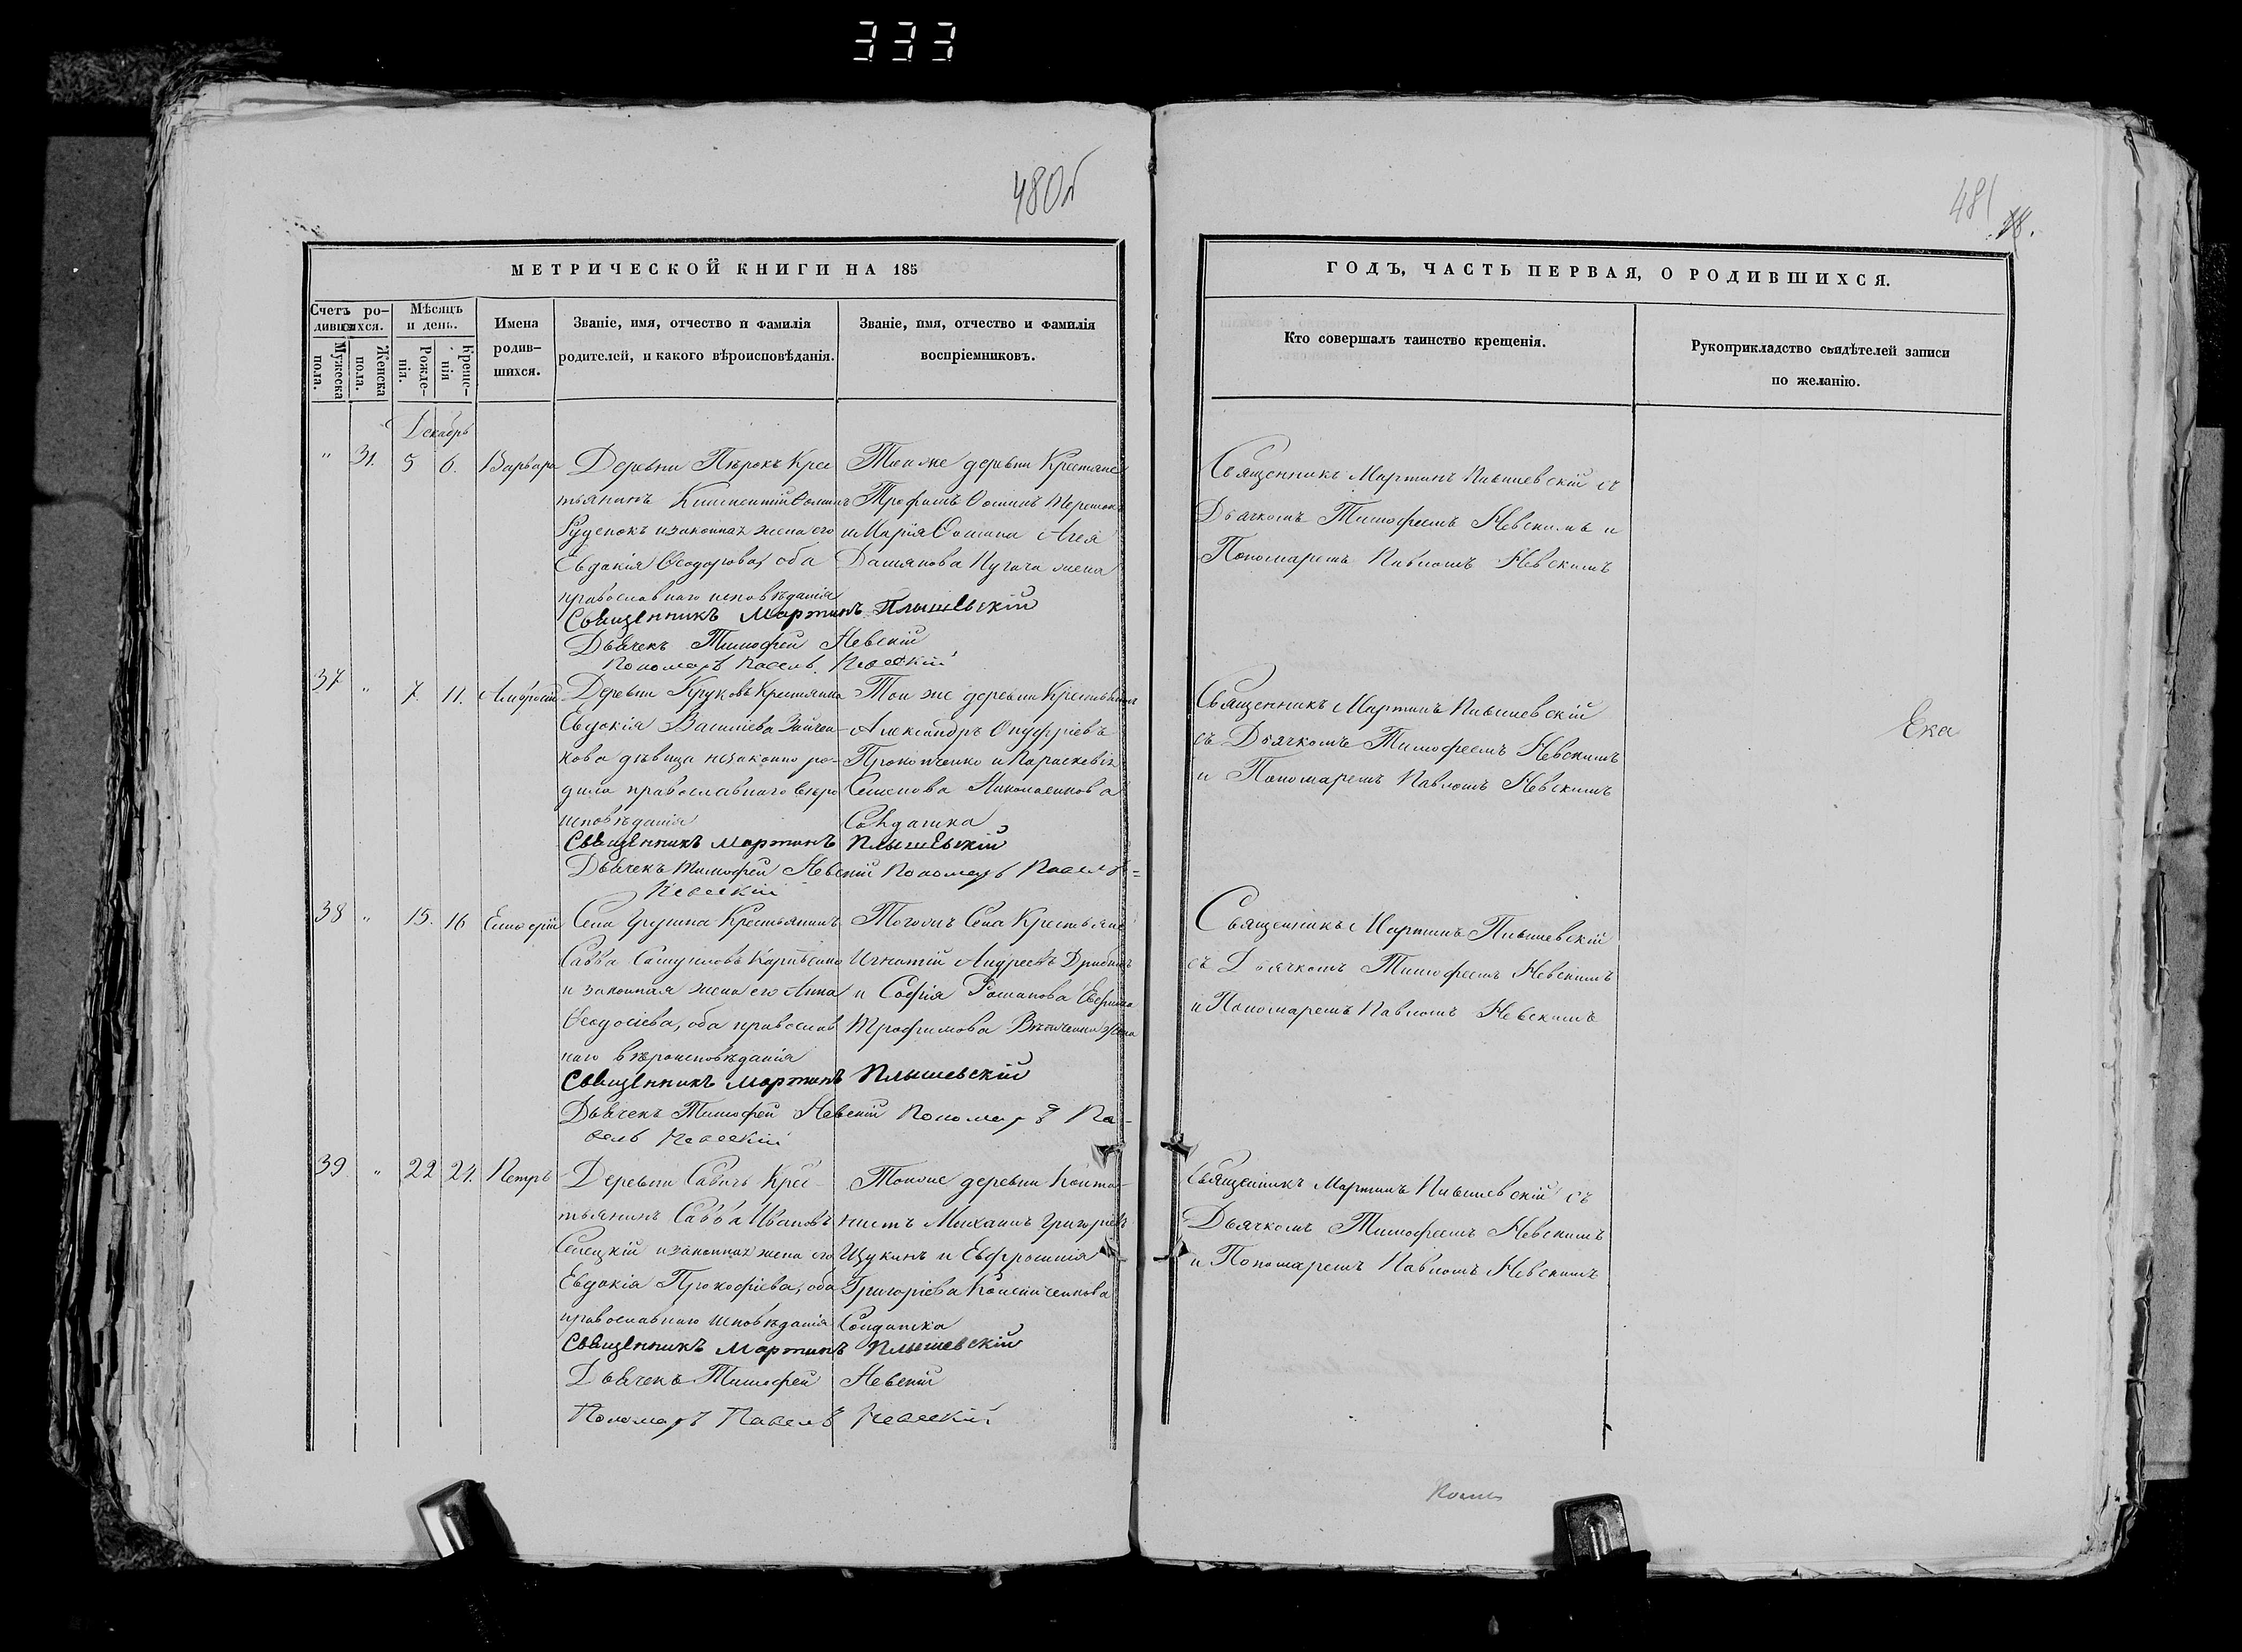 333
480об
МЕТРИЧЕСКОЙ КНИГИ НА 185
Счетъ ро-
дившихся.
Мужеска
пола.
Женска
пола.
Мѣсяцъ
и день.
Рожде-
нія.
Креще-
нія
Имена
родив-
шихся.
Званіе, имя, отчество и фамилія
родителей, и какого вѣроисповѣданія.
Званіе, имя, отчество и фамилія
воспріемниковъ.
Декабрь
" 31. 5 6. Варвара
Деревни Пѣрокъ Крес
тьянинъ Климентій Фоминъ
Руденокъ и законная жена его
Евдокія Ѳеодорова, оба
православнаго исповѣданія
Тойже деревни Крестьяне
Трофимъ Фоминъ
и Марія Фомина
Дамянова Пугача жена
Священникъ Мартинъ Плышевскій
Дьячекъ Тимофей Невскій
Пономарь Павелъ Невскій
37 " 7. 11. Амбросій
Деревни Круковъ Крестьянка
Евдокія Василіева Зайчен
кова дѣвица незаконно ро-
дила православнаго вѣро
исповѣданія
Той же деревни Крестьянинъ
Александръ Онуфріевъ
Прокопченко и Параскевія
Семенова Николаенкова
Солдатка
Священникъ Мартинъ Плышевскій
Дьячекъ Тимофей Невскій Пономарь Павелъ=
Невскій
38 " 15. 16
Села Крестьянинъ
Савва Самуиловъ
и законная жена его Анна
Ѳеодосіева, оба православ
наго вѣроисповѣданія
Тогожъ Села Крестьяне
Игнатій Андреевъ
и Софія Романова
Трофимова жена
Священникъ Мартинъ Плышевскій
Дьячекъ Тимофей Невскій Пономарь Па-
велъ Невскій
39 " 22 24. Петръ
Деревни Савичъ Крес-
тьянинъ Савва Ивановъ
Селецкій и законная жена его
Евдокія Прокофіева, оба
православнаго исповѣданія
Тойже деревни Канто-
нистъ Михаилъ Григоріевъ
Щукинъ и Евфросинія
Григоріева
Солдатка
Священникъ Мартинъ Плышевскій
Дьячекъ Тимофей Невскій
Пономарь Павелъ Невскій
481
ГОДЪ, ЧАСТЬ ПЕРВАЯ, О РОДИВШИХСЯ.
Кто совершалъ таинство крещенія.
Рукоприкладство свидѣтелей записи
по желанію.
Священникъ Мартинъ Плышевскій съ
Дьячкомъ Тимофеемъ Невскимъ и
Пономаремъ Павломъ Невскимъ
Священникъ Мартинъ Плышевскій
съ Дьячкомъ Тимофеемъ Невскимъ
и Пономаремъ Павломъ Невскимъ
Ека
Священникъ Мартинъ Плышевскій
съ Дьячкомъ Тимофеемъ Невскимъ
и Пономаремъ Павломъ Невскимъ
Священникъ Мартинъ Плышевскій съ
Дьячкомъ Тимофеемъ Невскимъ
и Пономаремъ Павломъ Невскимъ